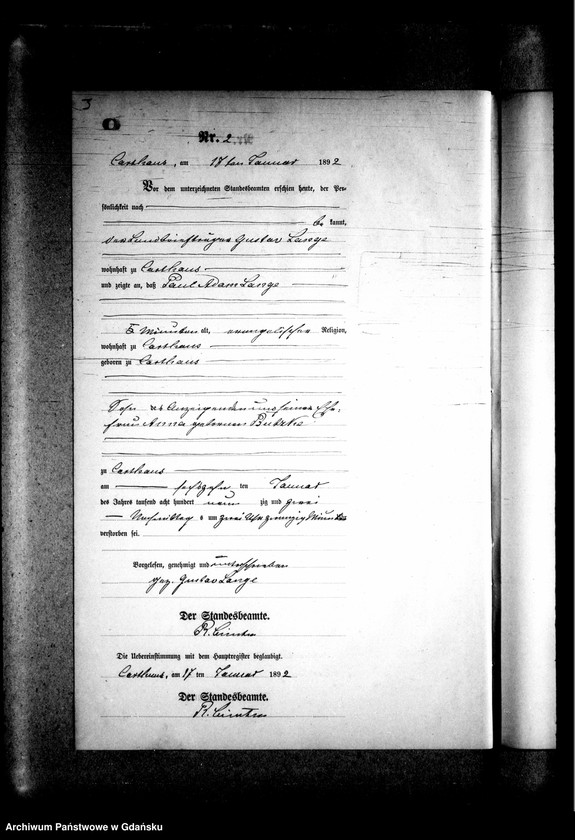 3
Nr. 2
Carthaus, am 17 ten Januar 1892
Vor dem unterzeichneten Standesbeamten erschien heute, der Per-
sönlichkeit nach
be kannt,
der Landbriefträger Gustav Lange
wohnhaft zu Carthaus
und zeigte an, daß Paul Adam Lange
5 Minuten alt, evangelischer Religion,
wohnhaft zu Carthaus
geboren zu Carthaus
Sohn des Anzeigenden und seiner Ehe-
frau Anna geborenen Butzke
zu Carthaus
am sechszehn ten Januar
des Jahres tausend acht hundert neun zig und zwei
Nachmittag s um zwei Uhr zwanzig Minuten
verstorben sei.
Vorgelesen, genehmigt und unterschrieben
gez. Gustav Lange
Der Standesbeamte.
Die Uebereinstimmung mit dem Hauptregister beglaubigt.
Carthaus, am 17 ten Januar 1892
Der Standesbeamte.
Archiwum Państwowe w Gdańsku